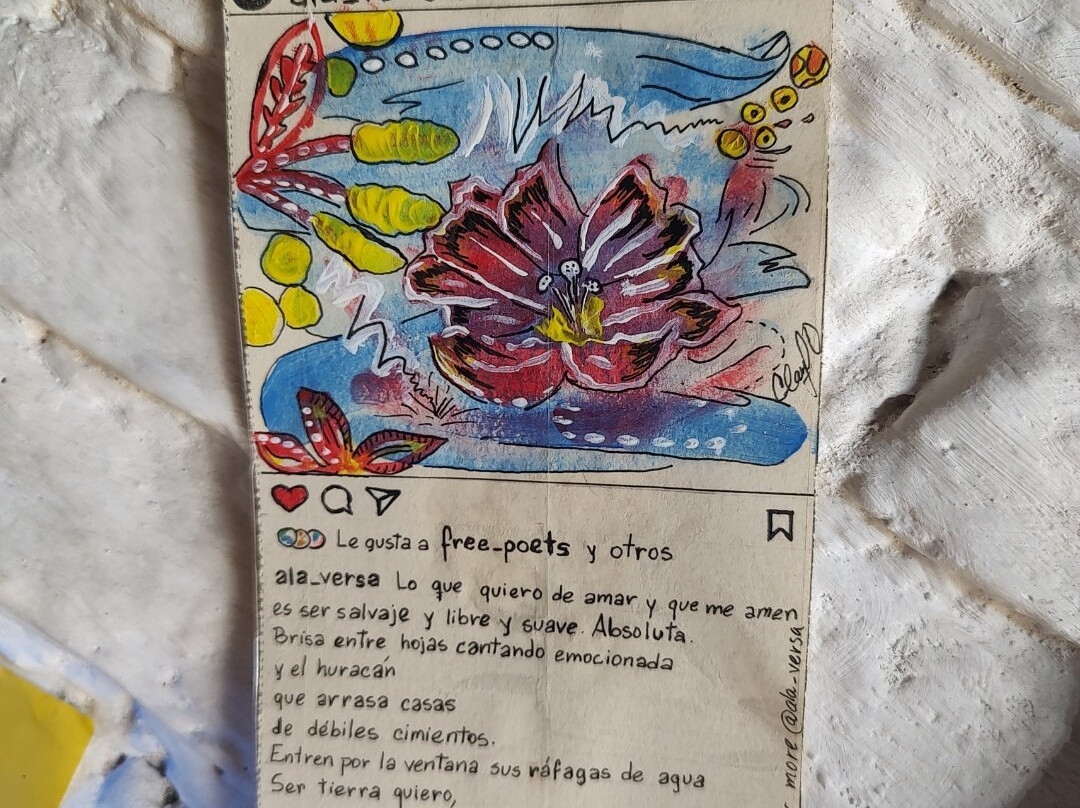 Clau
Le gusta a free_poets y otros
ala_versa Lo que quiero de amar y que me amen
es ser salvaje y libre y suave. Absoluta.
Brisa entre hojas cantando emocionada
y el huracán
que arrasa casas
de débiles cimientos.
Entren por la ventana sus ráfagas de agua
Ser tierra quiero,
more @ala_versa